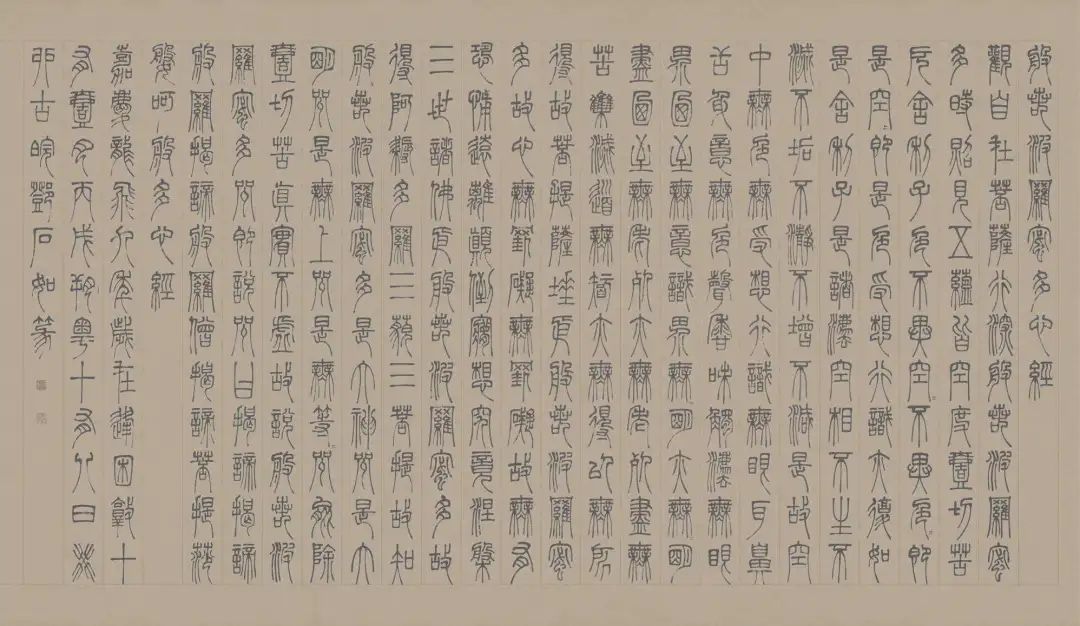 般若波羅蜜多心經
觀自在菩薩行深般若波羅蜜
多時照見五蘊皆空度壹切苦
厄舍利子色不異空〻不異色〻即
是空〻即是色受想行識亦復如
是舍利子是諸法空相不生不
滅不垢不淨不增不減是故空
中無色無受想行識無眼耳鼻
舌身意無色聲香味觸法無眼
界迺至無意識界無〻明亦無〻明
盡迺至無老死亦無老死盡無
苦集滅道無智亦無得以無所
得故菩提薩埵依般若波羅蜜
多故心無罣礙無罣礙故無有
恐怖遠離顛倒夢想究竟涅槃
三世諸佛依般若波羅蜜多故
得阿耨多羅三藐三菩提故知
般若波羅蜜多是大神咒是大
明咒是無上咒是無等〻咒能除
壹切苦真實不虛故說般若波
羅蜜多咒即說咒曰揭諦揭諦
般羅揭諦般羅僧揭諦菩提薩
婆呵般多心經
嘉慶龍飛九年歲在逢困敦十
有壹月丙戌朔粵十有八日
古皖鄧石如篆